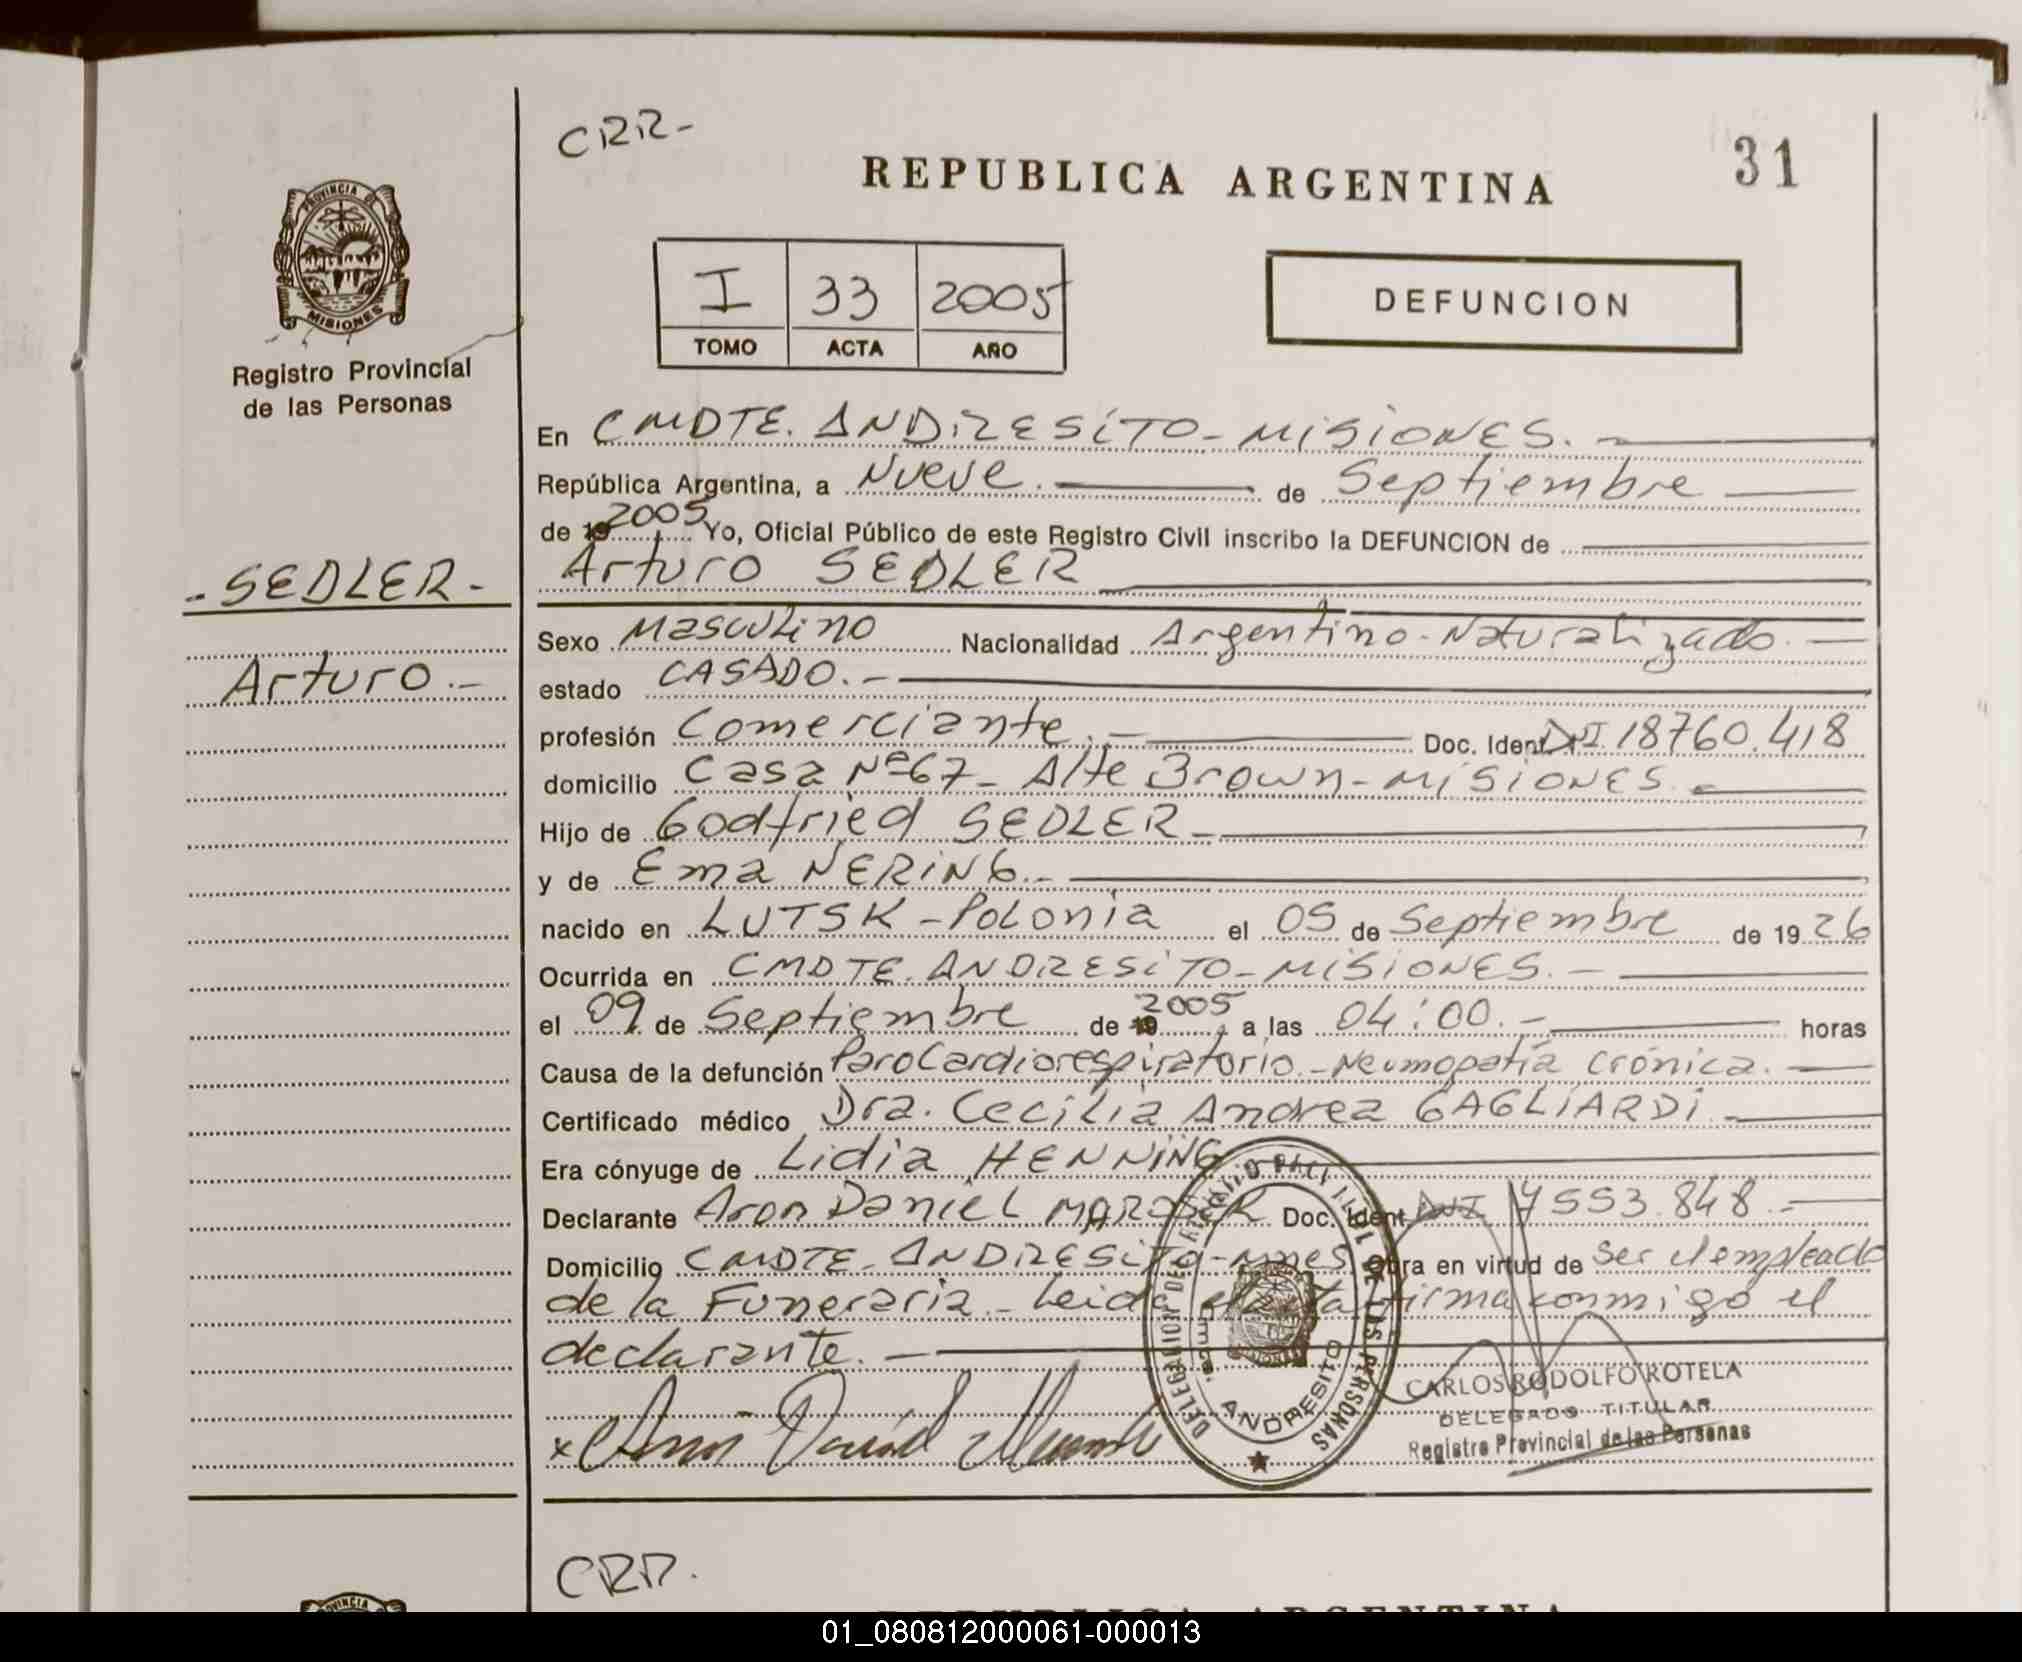 CRR-
REPUBLICA ARGENTINA
31
PROVINCIA DE
MISIONES
Registro Provincial
de las Personas
I 33 2005
TOMO ACTA AÑO
DEFUNCION
En CMDTE. ANDRESITO - MISIONES.
República Argentina, a Nueve. de Septiembre
de 19 2005 Yo, Oficial Público de este Registro Civil inscribo la DEFUNCION de
- SEDLER -
Arturo SEDLER
Sexo Masculino Nacionalidad Argentino-Naturalizado.
Arturo.-
estado CASADO.-
profesión Comerciante.- Doc. Ident. DNI 18760.418
domicilio Casa Nº67- Alte Brown-MISIONES.
Hijo de Godfried SEDLER-
y de Ema NERING.-
nacido en LUTSK-Polonia el 05 de Septiembre de 1926
Ocurrida en CMDTE. ANDRESITO-MISIONES.-
el 09 de Septiembre de 19 2005, a las 04:00.- horas
Causa de la defunción ParoCardiorespiratorio-Neumopatía Crónica.
Certificado médico Dra. Cecilia Andrea GAGLIARDI-
Era cónyuge de Lidia HENNING
Declarante Aron Daniel Doc. Ident. DNI 7553.848.-
Domicilio CMDTE. ANDRESITO-Mnes Obra en virtud de Ser el empleado
de la Funeraria.- Leida el acta firma conmigo el
declarante.
DELEGACION DEL REGISTRO PROVINCIAL DE LAS PERSONAS
Cmte. ANDRESITO
CARLOS RODOLFO ROTELA
DELEGADO TITULAR
Registro Provincial de las Personas
CRR.
PROVINCIA
REPUBLICA ARGENTINA
01_080812000061-000013